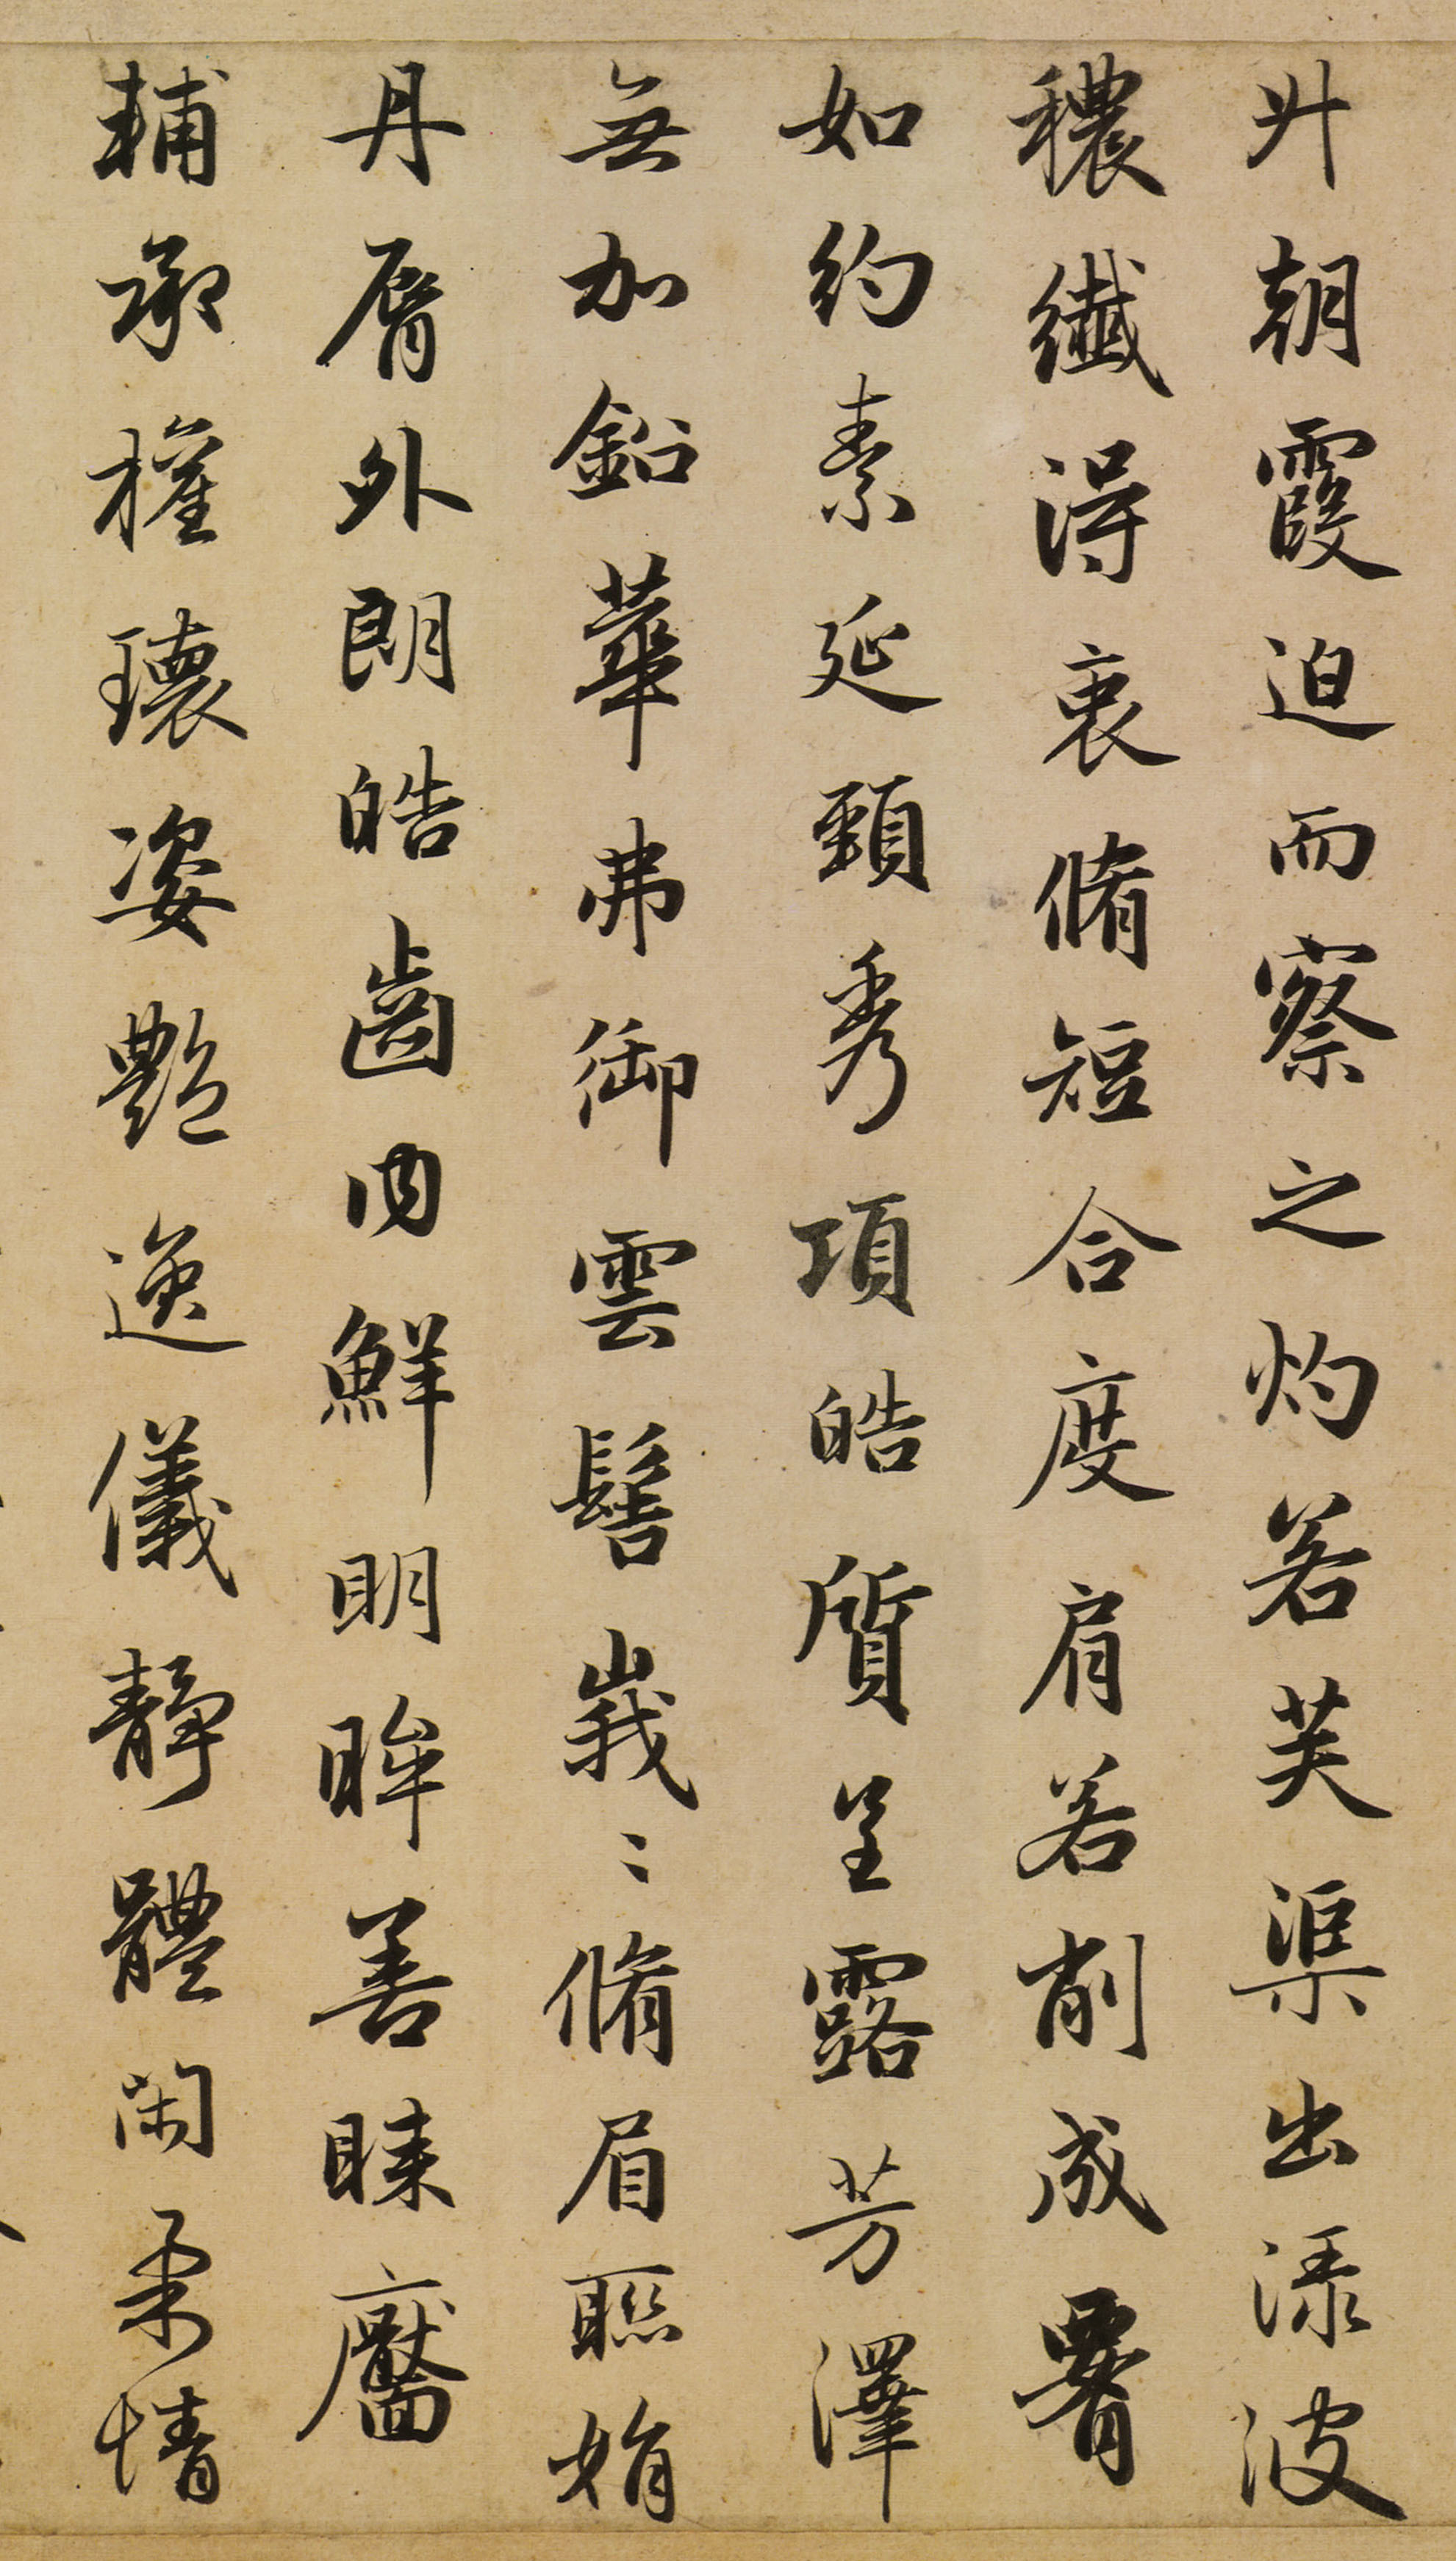 升朝霞迫而察之灼若芙渠出渌波
穠纖得衷脩短合度肩若削成䙅
如約素延頸秀項皓質呈露芳澤
無加鉛華弗御雲髻峩〻脩眉聯娟
丹脣外朗皓齒内鮮明眸善睞靨
輔承權瓌姿艶逸儀靜體閑柔情